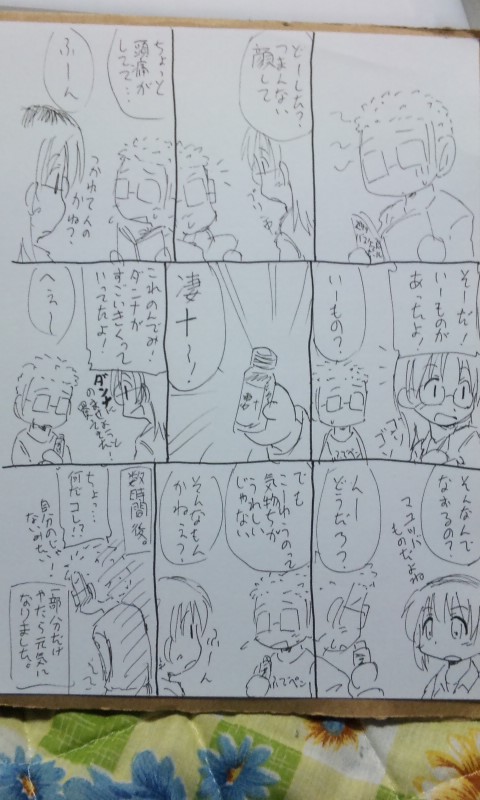 どーしたの?
つまんない
顔して
ちょっと
頭痛が
してて…
ふーん
つかれてんの
かね?
そーだ!
いーものが
あったよ!
ゴソ
ゴソ
いーもの?
凄十〜!
これのんでみ!
ダンナが
すごいきくって
いってたよ!
へぇ〜
ダンナ
そんなんで
なおるの?
ん〜
どうだろ?
ふでペン
でも
こーゆうのって
気持ちが
うれしい
じゃない
そんなもん
かねえ?
ふーん
ふでペン
数時間後。
ちょっ…
何だコレ!?
自分のじゃ
ないみたい!
一部分だけ
やたら元気に
なりました。